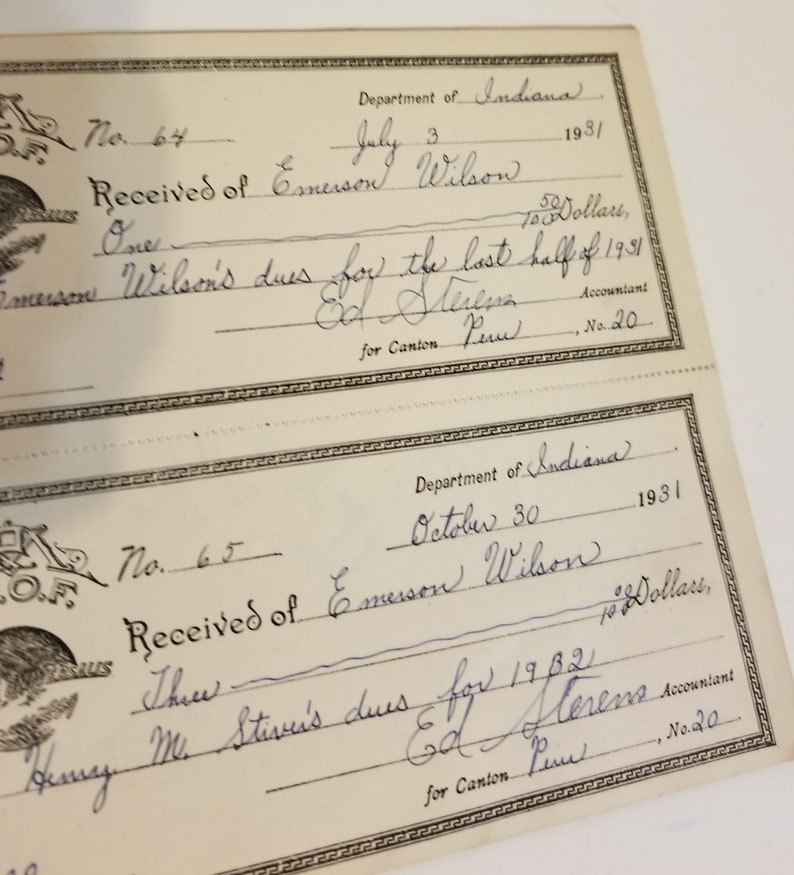 Department of Indiana
No. 64
July 3 1931
O.F.
Received of Emerson Wilson
One 50/100 Dollars,
Emerson Wilson's dues for the last half of 1931
Ed Sterens Accountant
for Canton Peru, No. 20
Department of Indiana
October 30 1931
No. 65
.O.F.
Received of Emerson Wilson
Three 00/100 Dollars,
Henry M. Stiver's dues for 1932
Ed Sterens Accountant
for Canton Peru, No. 20